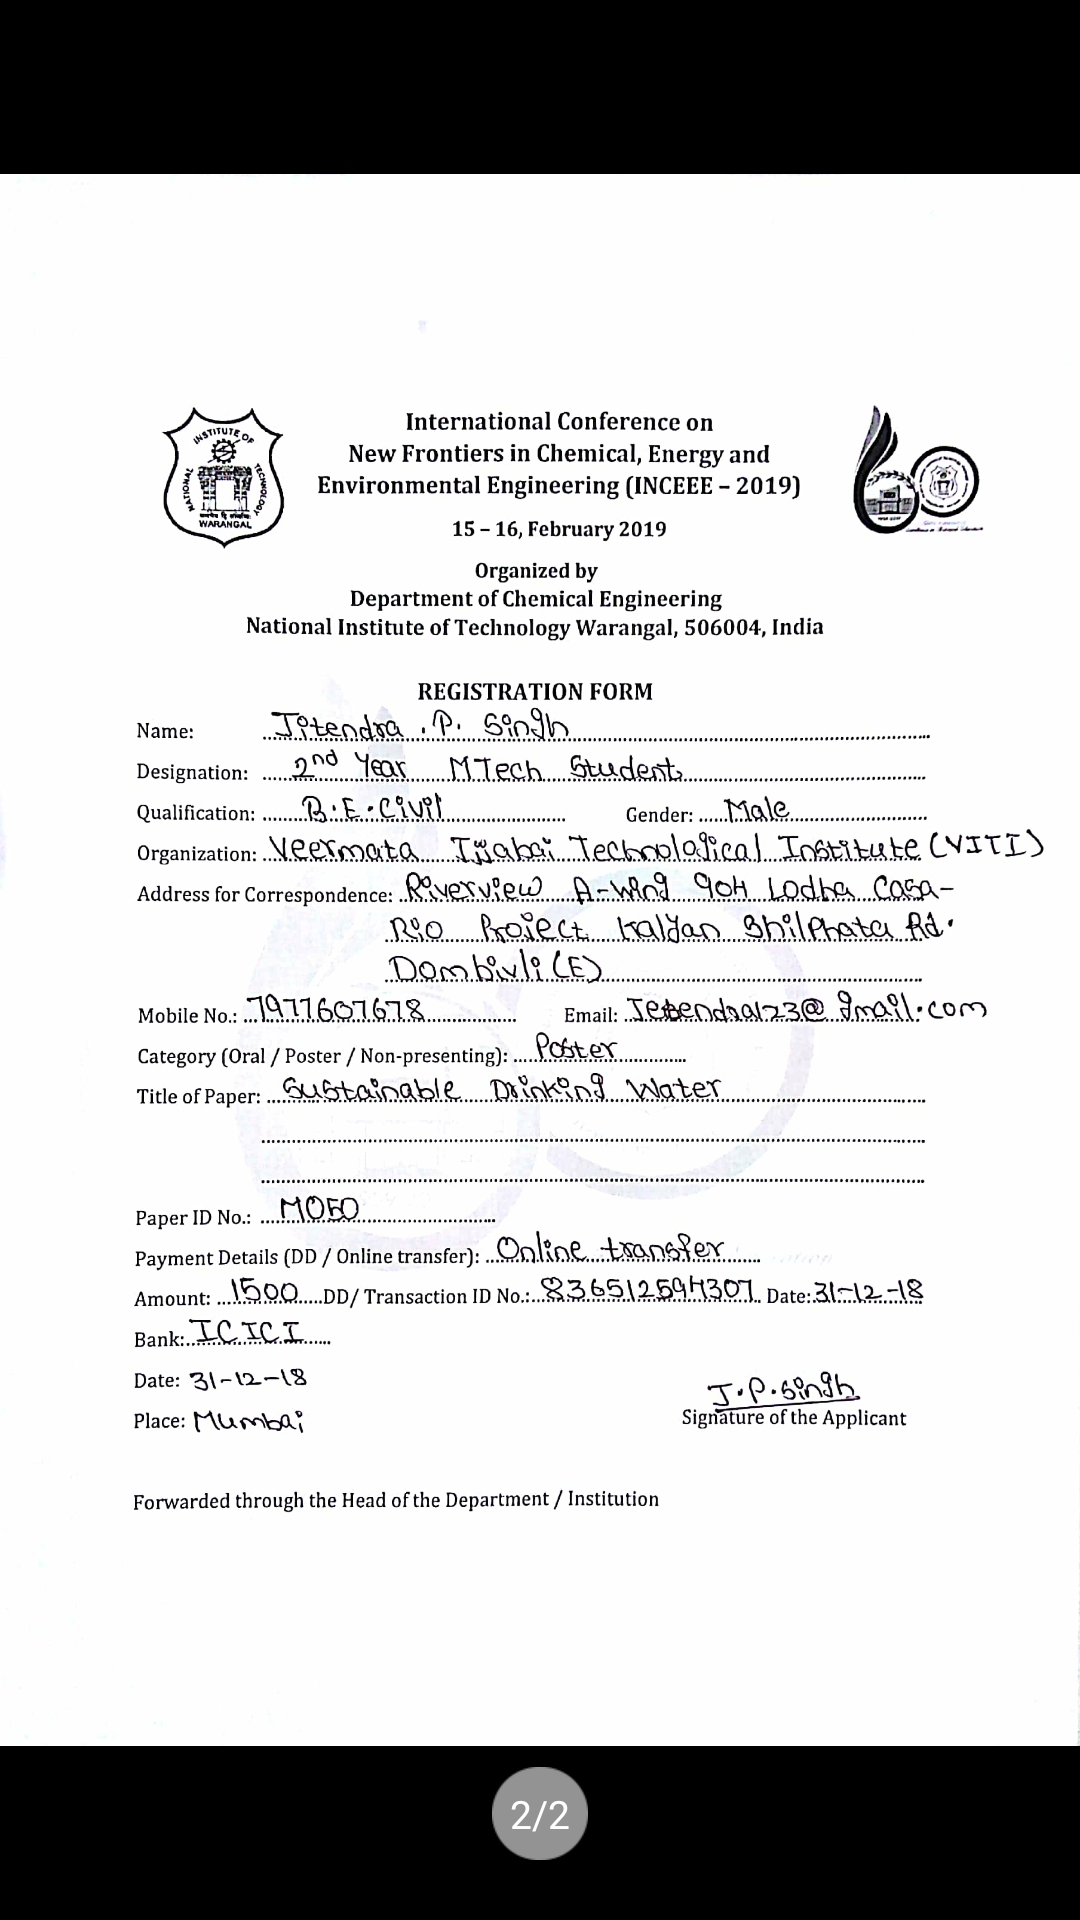 INSTITUTE OF
NATIONAL
TECHNOLOGY
WARANGAL
International Conference on
New Frontiers in Chemical, Energy and
Environmental Engineering (INCEEE – 2019)
15 – 16, February 2019
Organized by
Department of Chemical Engineering
National Institute of Technology Warangal, 506004, India
REGISTRATION FORM
Name: Jitendra . P. Singh
Designation: 2nd Year MTech Student
Qualification: B.E. Civil Gender: Male
Organization: Veermata Technological Institute (VITI)
Address for Correspondence: Riverview A-Wing 904 Lodha Casa-
Rio Project Kalyan Shilphata Rd.
Dombivli (E)
Mobile No.: 7977607678 Email:
Category (Oral / Poster / Non-presenting): Poster
Title of Paper: Sustainable Drinking Water
Paper ID No.: M050
Payment Details (DD / Online transfer): Online transfer
Amount: 1500 DD/ Transaction ID No.: 836512594307 Date: 31-12-18
Bank: ICICI
Date: 31-12-18
Place: Mumbai
J.P.Singh
Signature of the Applicant
Forwarded through the Head of the Department / Institution
2/2